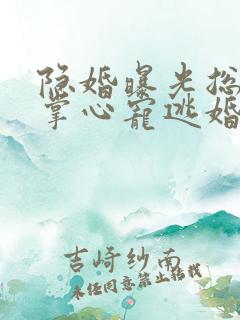 隐婚曝光总
掌心宠逃婚
吉崎纱南
未经同意禁止转载